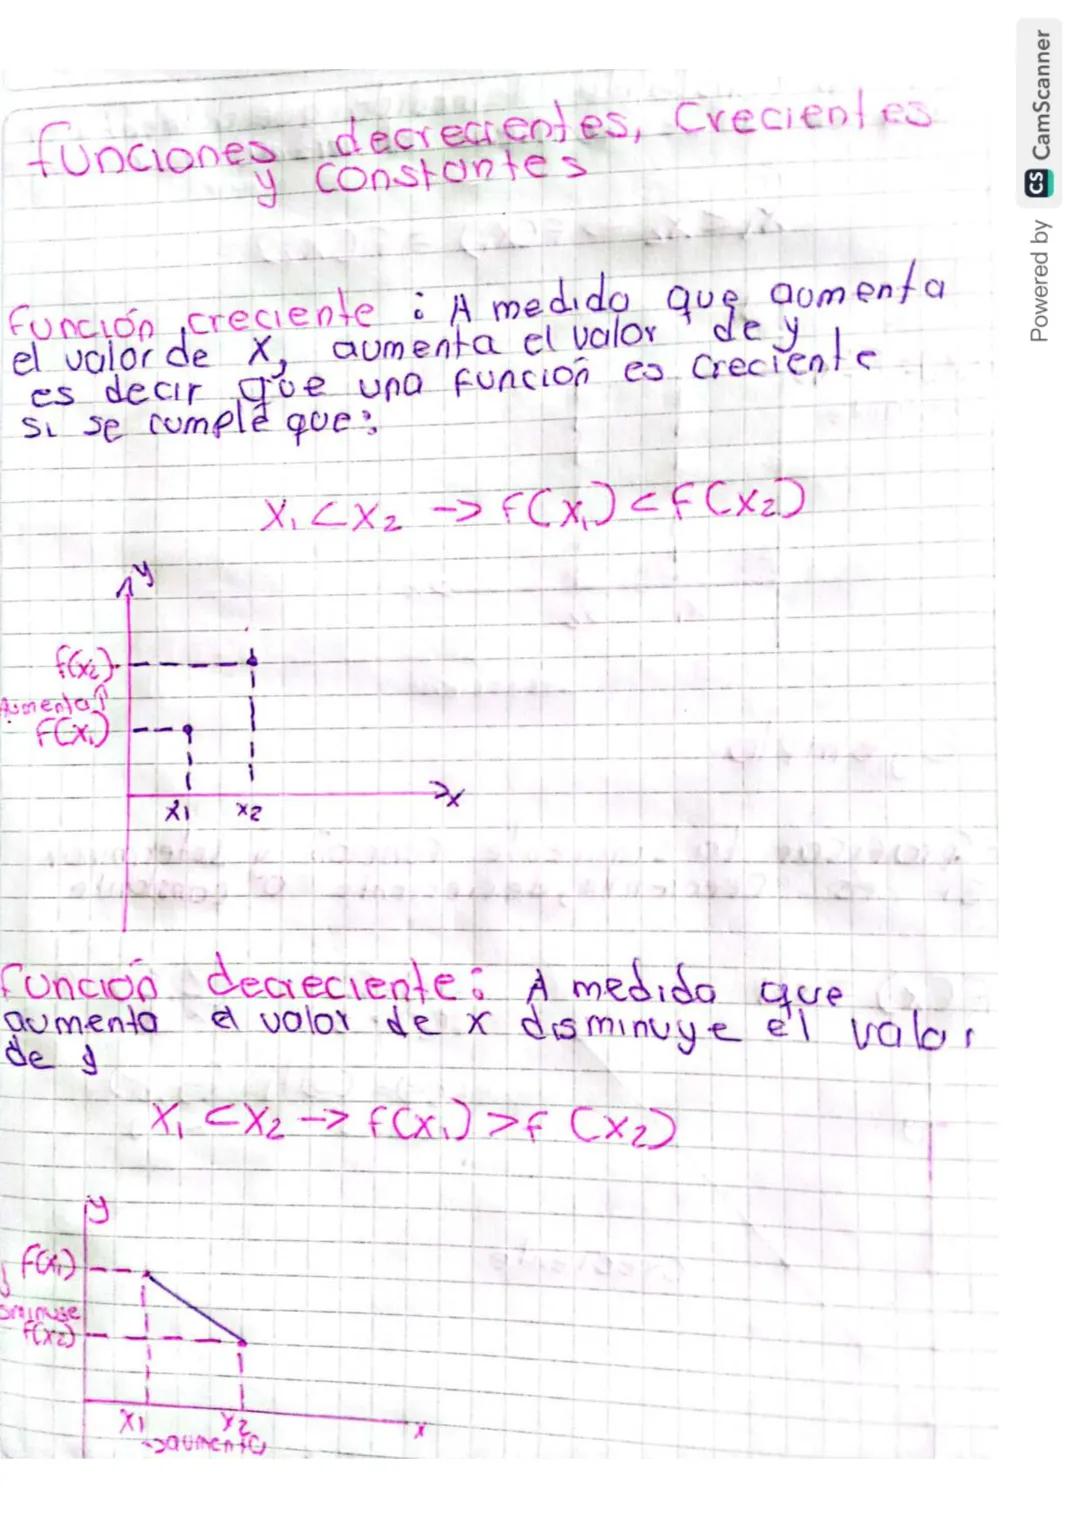 funciones decrecientes, Crecientes
y constantes
función creciente : A medida que aumenta
el valor de X, aumenta el valor de y
es decir que una función es creciente
si se cumple que:
X₁ < X₂ -> f(x₁) < f(x₂)
y
f(x₂)
Aumenta↑
f(x₁)
x1 x2
x
función decreciente: A medida que
aumenta el valor de x disminuye el valor
de y
X₁ < X₂ -> f(x₁) > f (x₂)
y
f(x₁)
f(x₂)
X1 x2
x
->aumenta
Powered by CS CamScanner